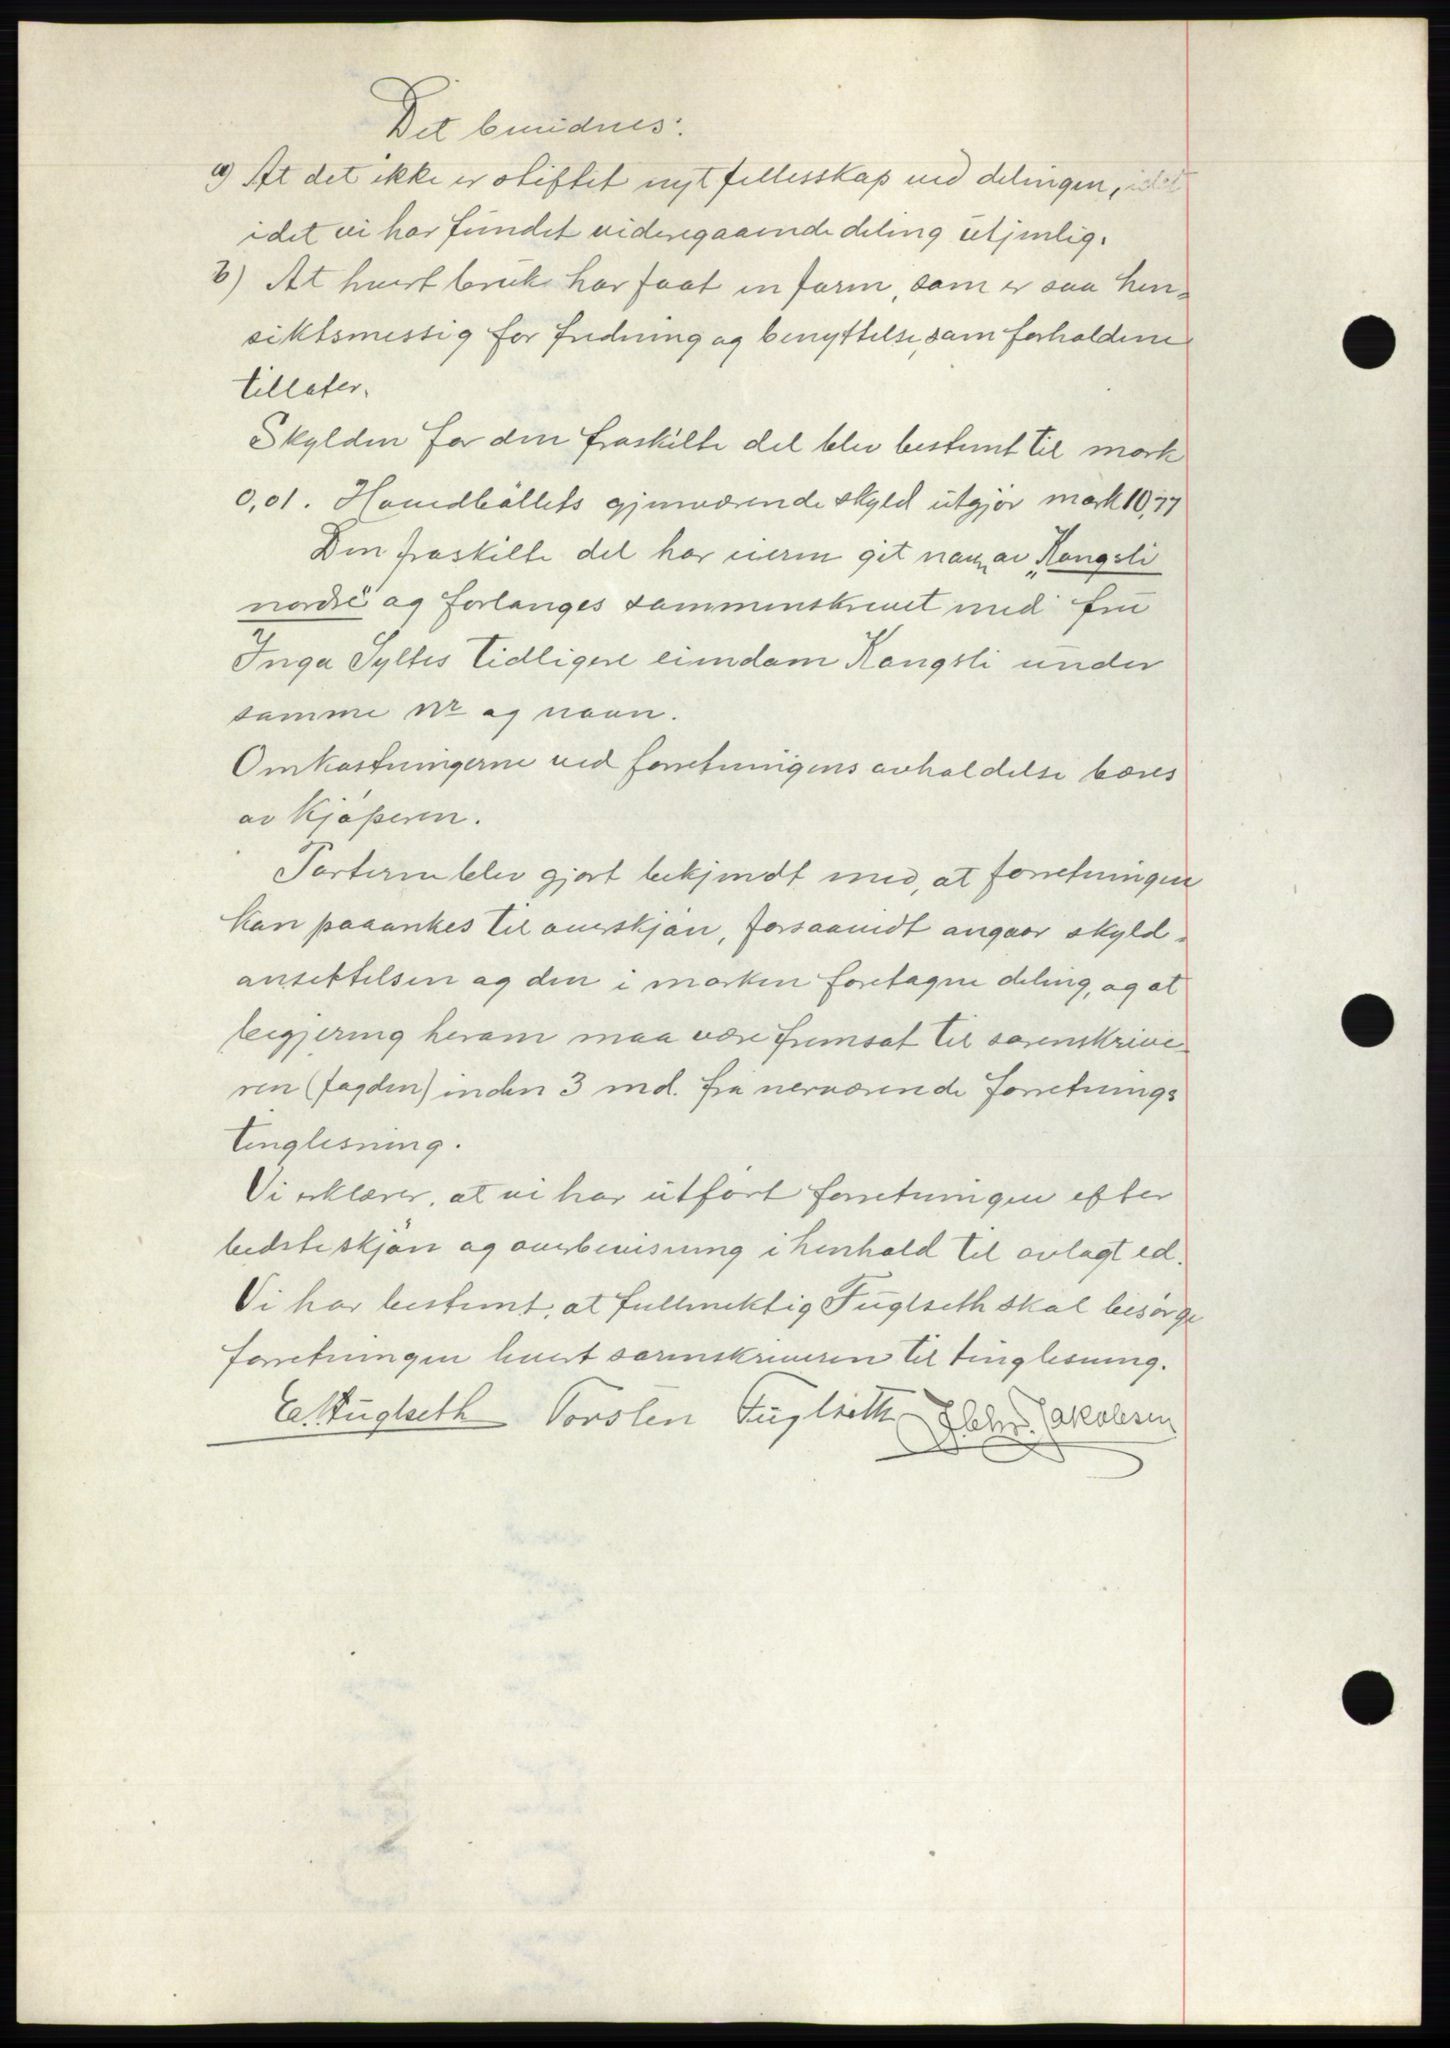 Det bevidnes:
a) At det ikke er stiftet nyt fellesskap ved delingen, idet
idet vi har fundet videregaaende deling utjenlig.
b) At hvert bruk har faat en form, som er saa hen-
siktsmessig for fredning og benyttelse, som forholdene
tillater.
Skylden for den fraskilte del blev bestemt til mark
0,01. Hovedbøllets gjenværende skyld utgjør mark 10,77
Den fraskilte del har eieren git navn av „Kongsli
nordre" og forlanges sammenskrevet med fru
Inga Syltes tidligere eiendom Kongsli under
samme Nr og navn.
Omkostningerne ved forretningens avholdelse bæres
av kjøperen.
Parterne blev gjort bekjendt med, at forretningen
kan paaankes til overskjøn, forsaavidt angaar skyld-
ansettelsen og den i marken foretagne deling, og at
begjering herom maa være fremsat til sorenskrive-
ren (fogden) inden 3 md. fra nerværende forretnings
tinglesning.
Vi erklærer, at vi har utført forretningen efter
bedste skjøn og overbevisning i henhold til avlagt ed.
Vi har bestemt, at fullmektig Fuglseth skal besørge
forretningen levert sorenskriveren til tinglesning.
E. Fuglseth Torsten Fuglseth Jakobsen